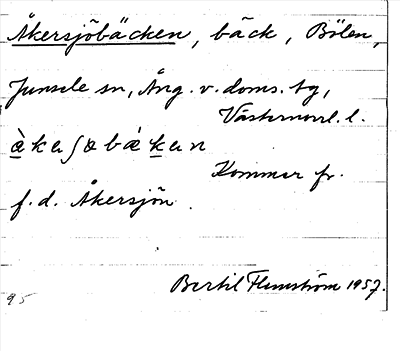 Åkersjöbäcken, bäck, Bölen,
Junsele sn, Ång. v. doms. tg,
Västernorrl. l.
Kommer fr.
f.d. Åkersjön.
Bertil Flemström 1957.
95